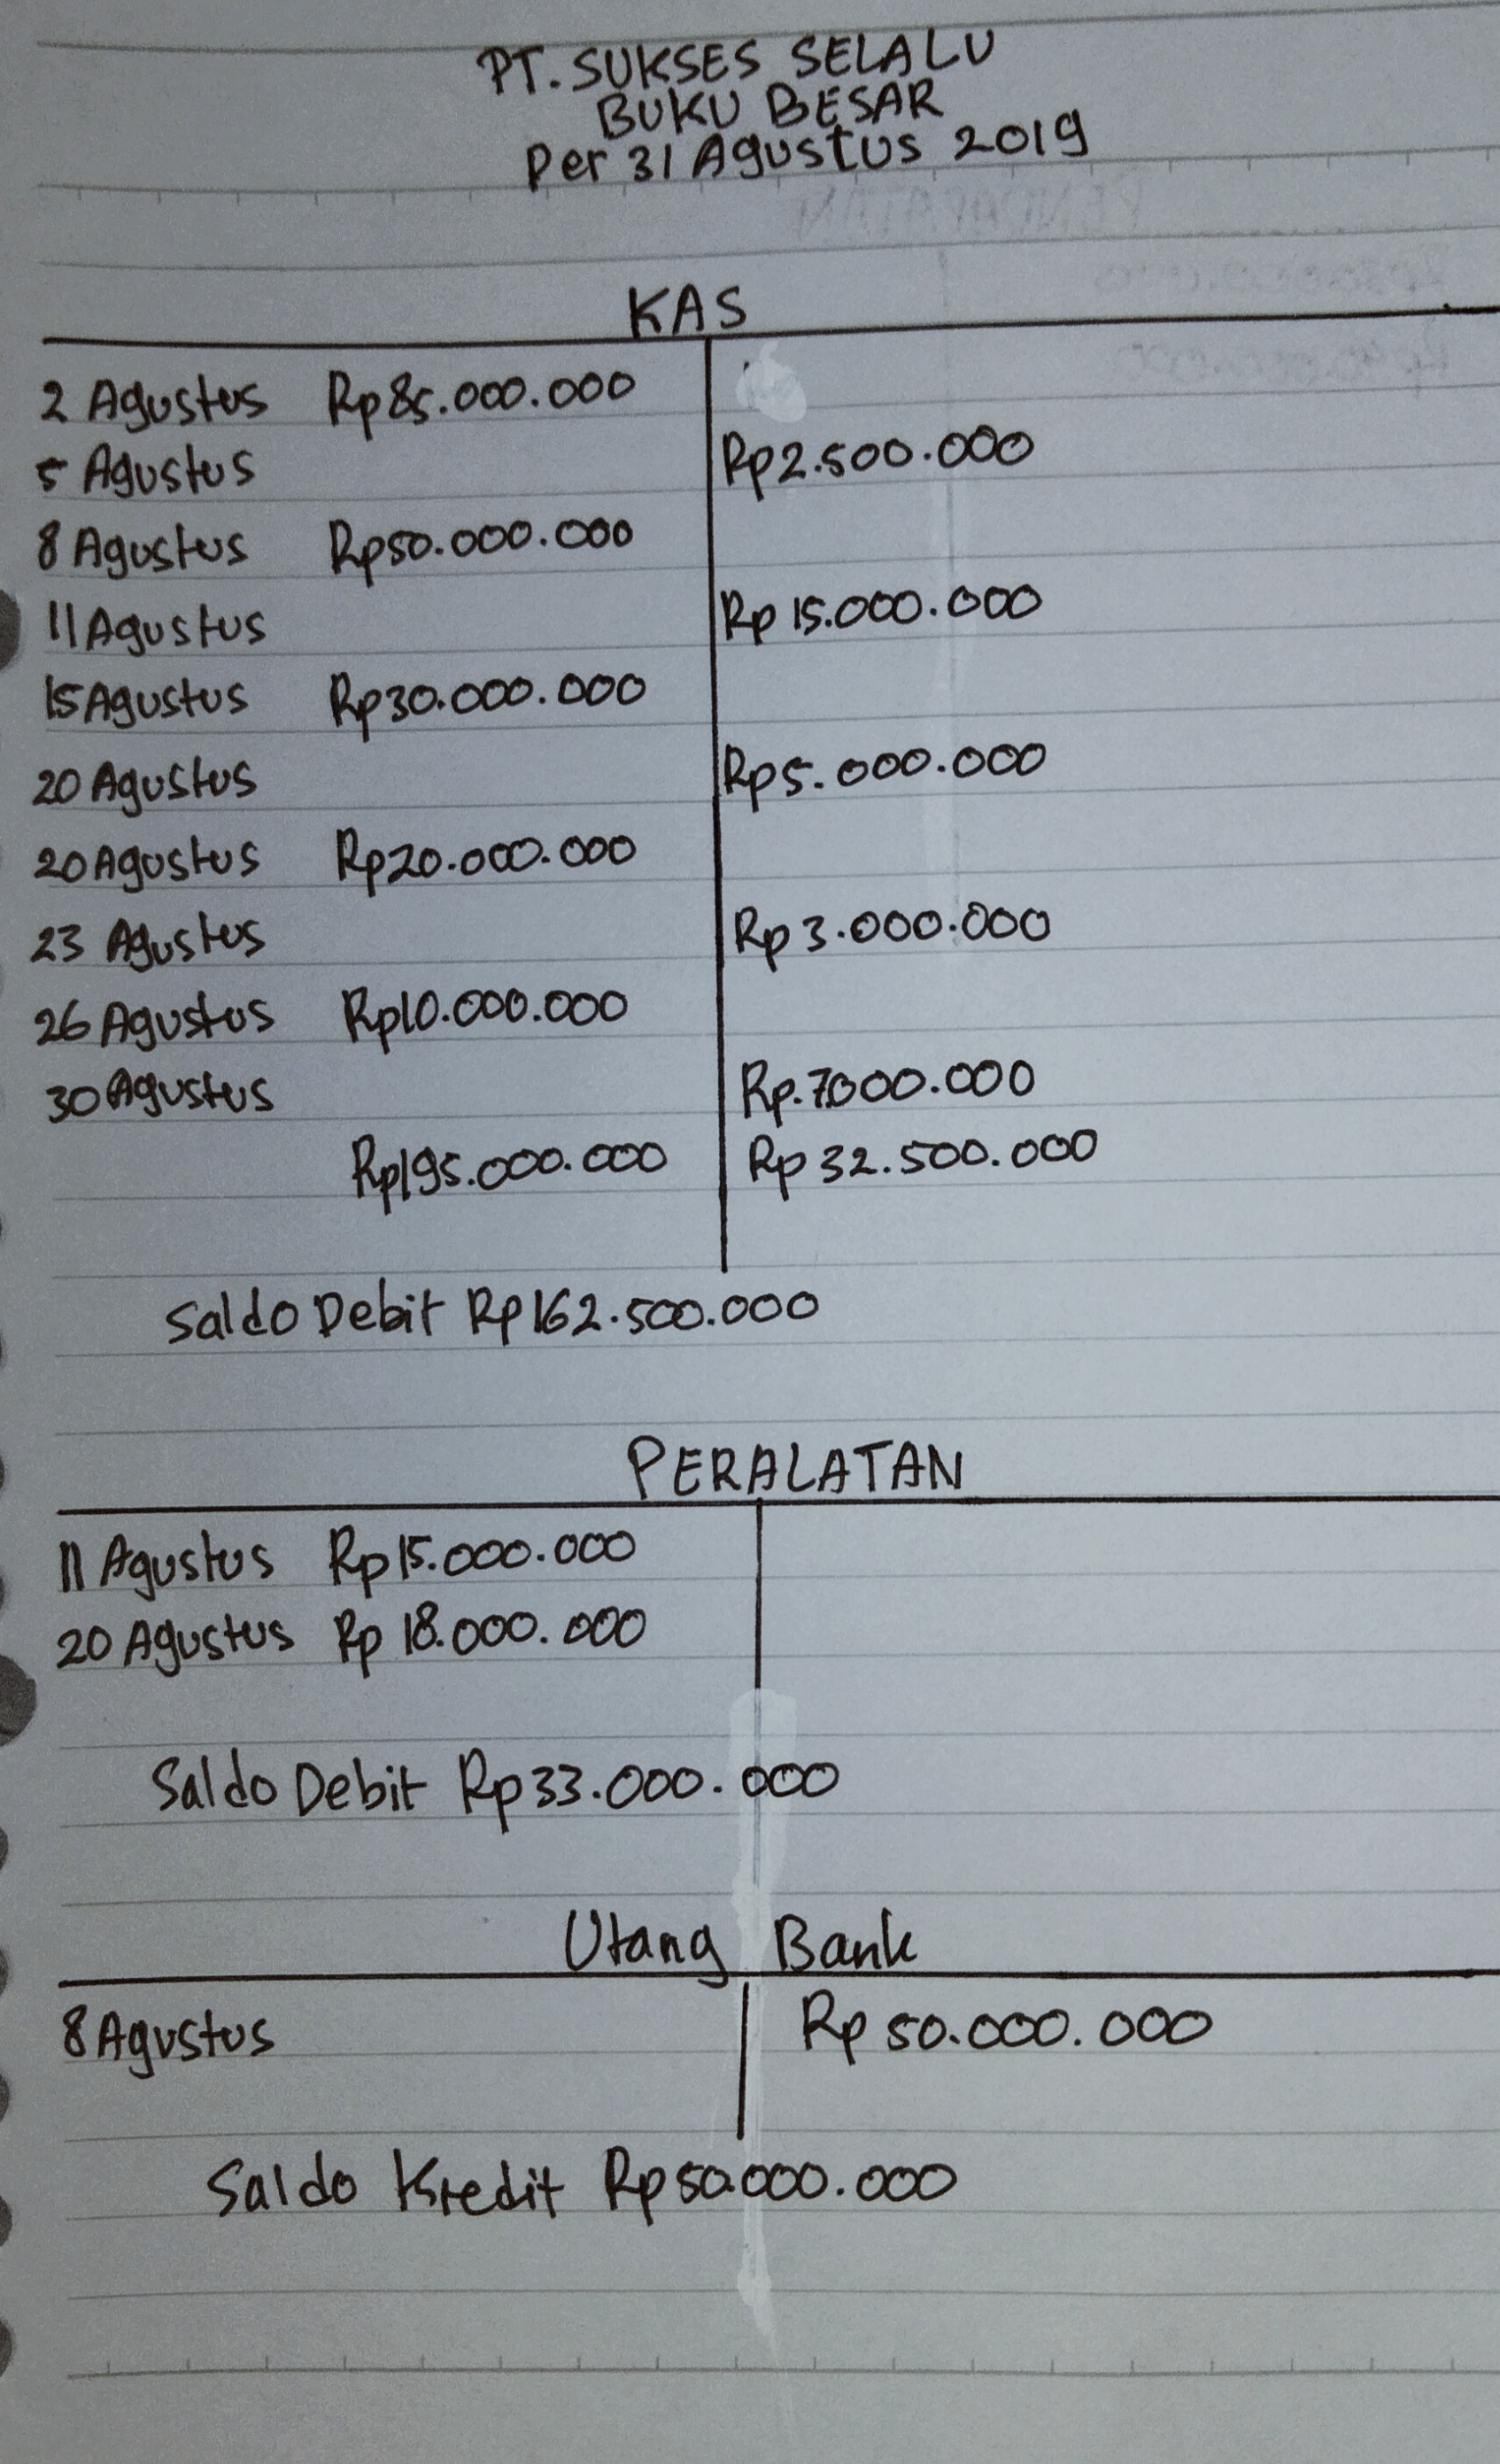 PT. SUKSES SELALU
BUKU BESAR
Per 31 Agustus 2019
KAS
2 Agustus Rp85.000.000
5 Agustus Rp2.500.000
8 Agustus Rp50.000.000
11 Agustus Rp 15.000.000
15 Agustus Rp30.000.000
20 Agustus Rp5.000.000
20 Agustus Rp20.000.000
23 Agustus Rp 3.000.000
26 Agustus Rp10.000.000
30 Agustus Rp.7.000.000
Rp195.000.000 Rp 32.500.000
Saldo Debit Rp162.500.000
PERALATAN
11 Agustus Rp15.000.000
20 Agustus Rp 18.000.000
Saldo Debit Rp33.000.000
Utang Bank
8 Agustus Rp 50.000.000
Saldo Kredit Rp50.000.000